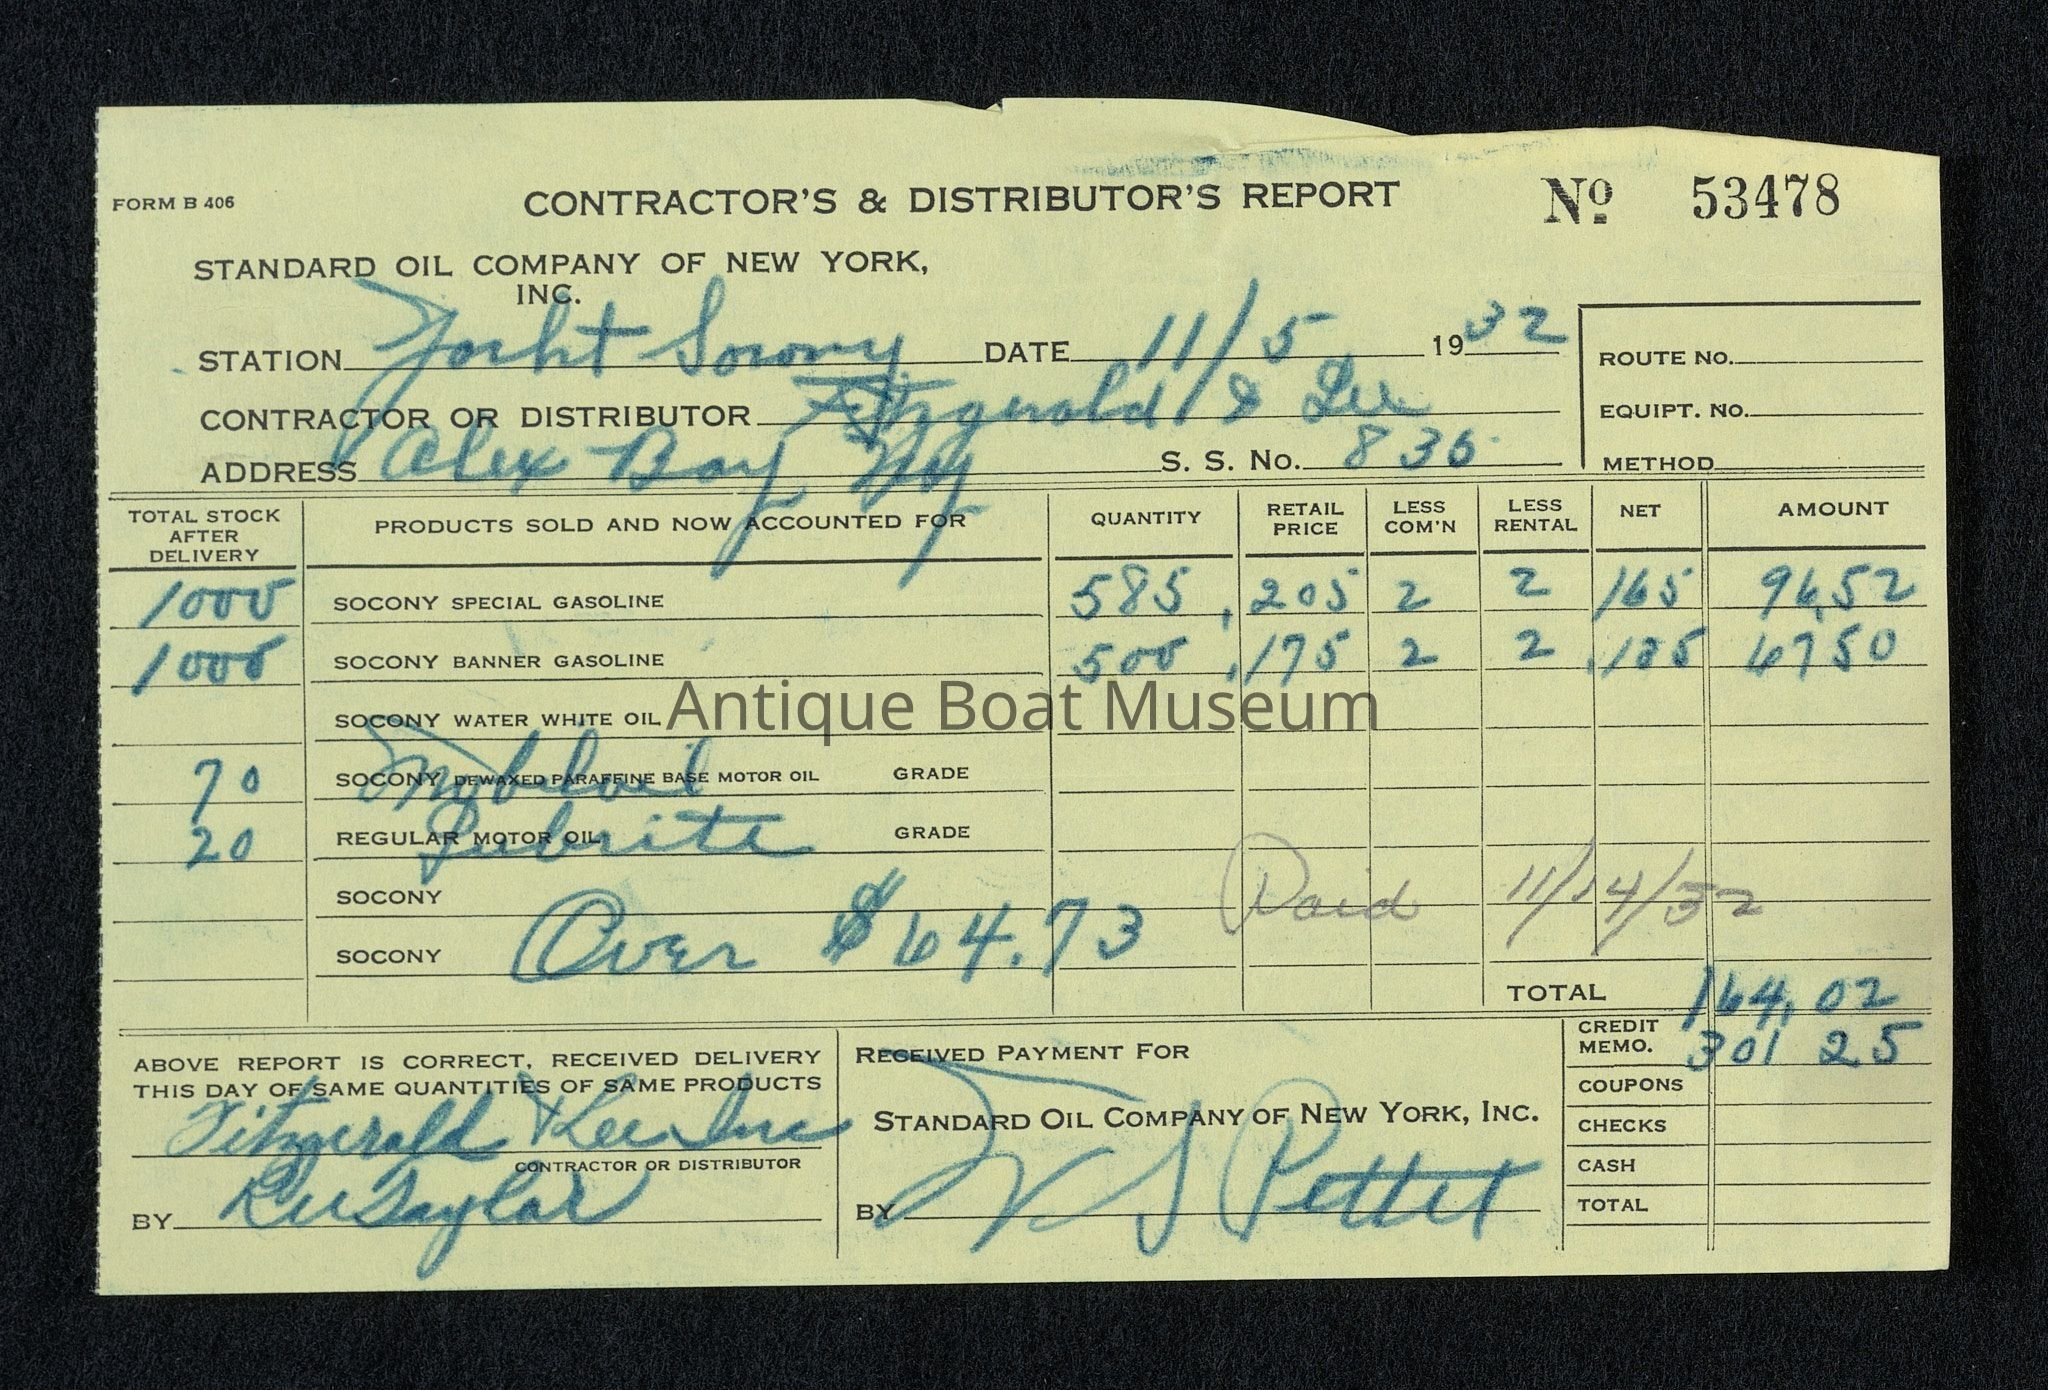 FORM B 406
CONTRACTOR'S & DISTRIBUTOR'S REPORT
No. 53478
STANDARD OIL COMPANY OF NEW YORK,
INC.
STATION Yacht Socony DATE 11/5 1932
ROUTE NO.
CONTRACTOR OR DISTRIBUTOR Fitzgerald & Lee
EQUIPT. NO.
ADDRESS Alex Bay NY S. S. No. 836
METHOD
TOTAL STOCK AFTER DELIVERY PRODUCTS SOLD AND NOW ACCOUNTED FOR QUANTITY RETAIL PRICE LESS COM'N LESS RENTAL NET AMOUNT
1000 SOCONY SPECIAL GASOLINE 585 .205 2 2 165 96.52
1000 SOCONY BANNER GASOLINE 500 .175 2 2 .135 67 50
SOCONY WATER WHITE OIL
Antique Boat Museum
70 SOCONY DEWAXED PARAFFINE BASE MOTOR OIL GRADE
Mobiloil
20 REGULAR MOTOR OIL GRADE
Lubrite
SOCONY
Paid 11/14/32
SOCONY Over $64.73
TOTAL 164.02
CREDIT MEMO. 301 25
COUPONS
CHECKS
CASH
TOTAL
ABOVE REPORT IS CORRECT, RECEIVED DELIVERY
THIS DAY OF SAME QUANTITIES OF SAME PRODUCTS
Fitzgerald & Lee Inc
CONTRACTOR OR DISTRIBUTOR
BY Taylor
RECEIVED PAYMENT FOR
STANDARD OIL COMPANY OF NEW YORK, INC.
BY Pettet